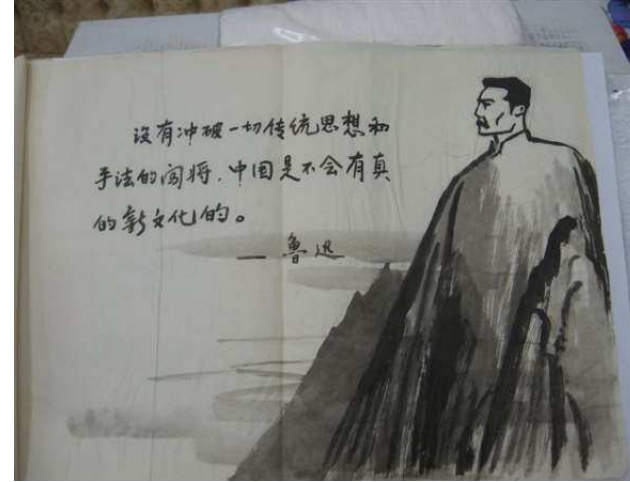 没有冲破一切传统思想和
手法的闯将，中国是不会有真
的新文化的。
—鲁迅